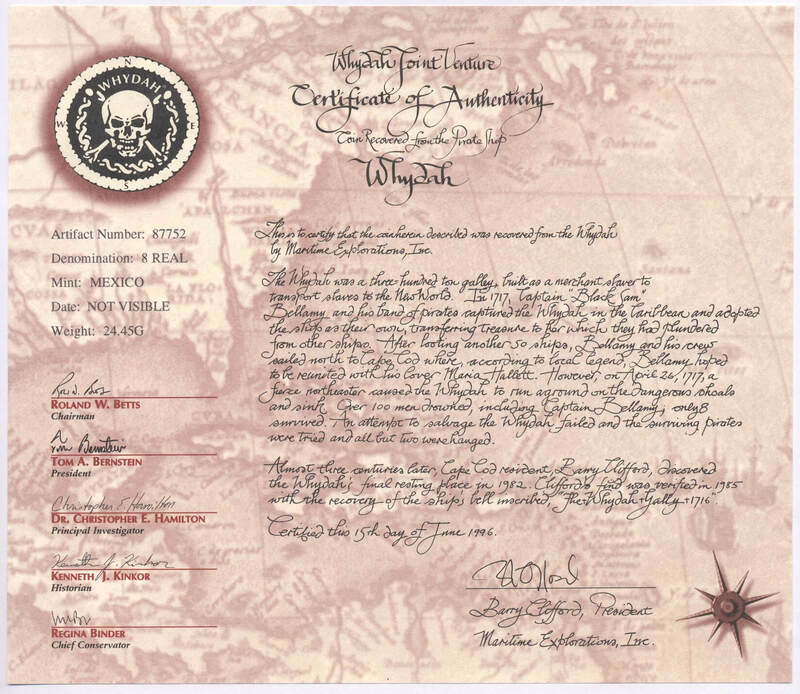 N
WHYDAH
W
E
S
Whydah Joint Venture
Certificate of Authenticity
Coin Recovered from the Pirate Ship
Whydah
Artifact Number: 87752
Denomination: 8 REAL
Mint: MEXICO
Date: NOT VISIBLE
Weight: 24.45G
This is to certify that the coin herein described was recovered from the Whydah
by Maritime Explorations, Inc.
The Whydah was a three hundred ton galley, built as a merchant slaver to
transport slaves to the New World. In 1717, Captain "Black Sam"
Bellamy and his band of pirates captured the Whydah in the Caribbean and adopted
the ship as their own, transferring treasure to her which they had plundered
from other ships. After looting another 50 ships, Bellamy and his crew
sailed north to Cape Cod where, according to local legend, Bellamy hoped
to be reunited with his lover Maria Hallett. However, on April 26, 1717, a
fierce northeaster caused the Whydah to run aground on the dangerous shoals
and sink. Over 100 men drowned, including Captain Bellamy, only 8
survived. An attempt to salvage the Whydah failed and the surviving pirates
were tried and all but two were hanged.
Almost three centuries later, Cape Cod resident, Barry Clifford, discovered
the Whydah's final resting place in 1982. Clifford's find was verified in 1985
with the recovery of the ship's bell inscribed, "The Whydah Gally 1716"
Certified this 15th day of June 1996.
ROLAND W. BETTS
Chairman
Tom Bernstein
TOM A. BERNSTEIN
President
Christopher E. Hamilton
DR. CHRISTOPHER E. HAMILTON
Principal Investigator
Kenneth J. Kinkor
KENNETH J. KINKOR
Historian
REGINA BINDER
Chief Conservator
Barry Clifford, President
Maritime Explorations, Inc.